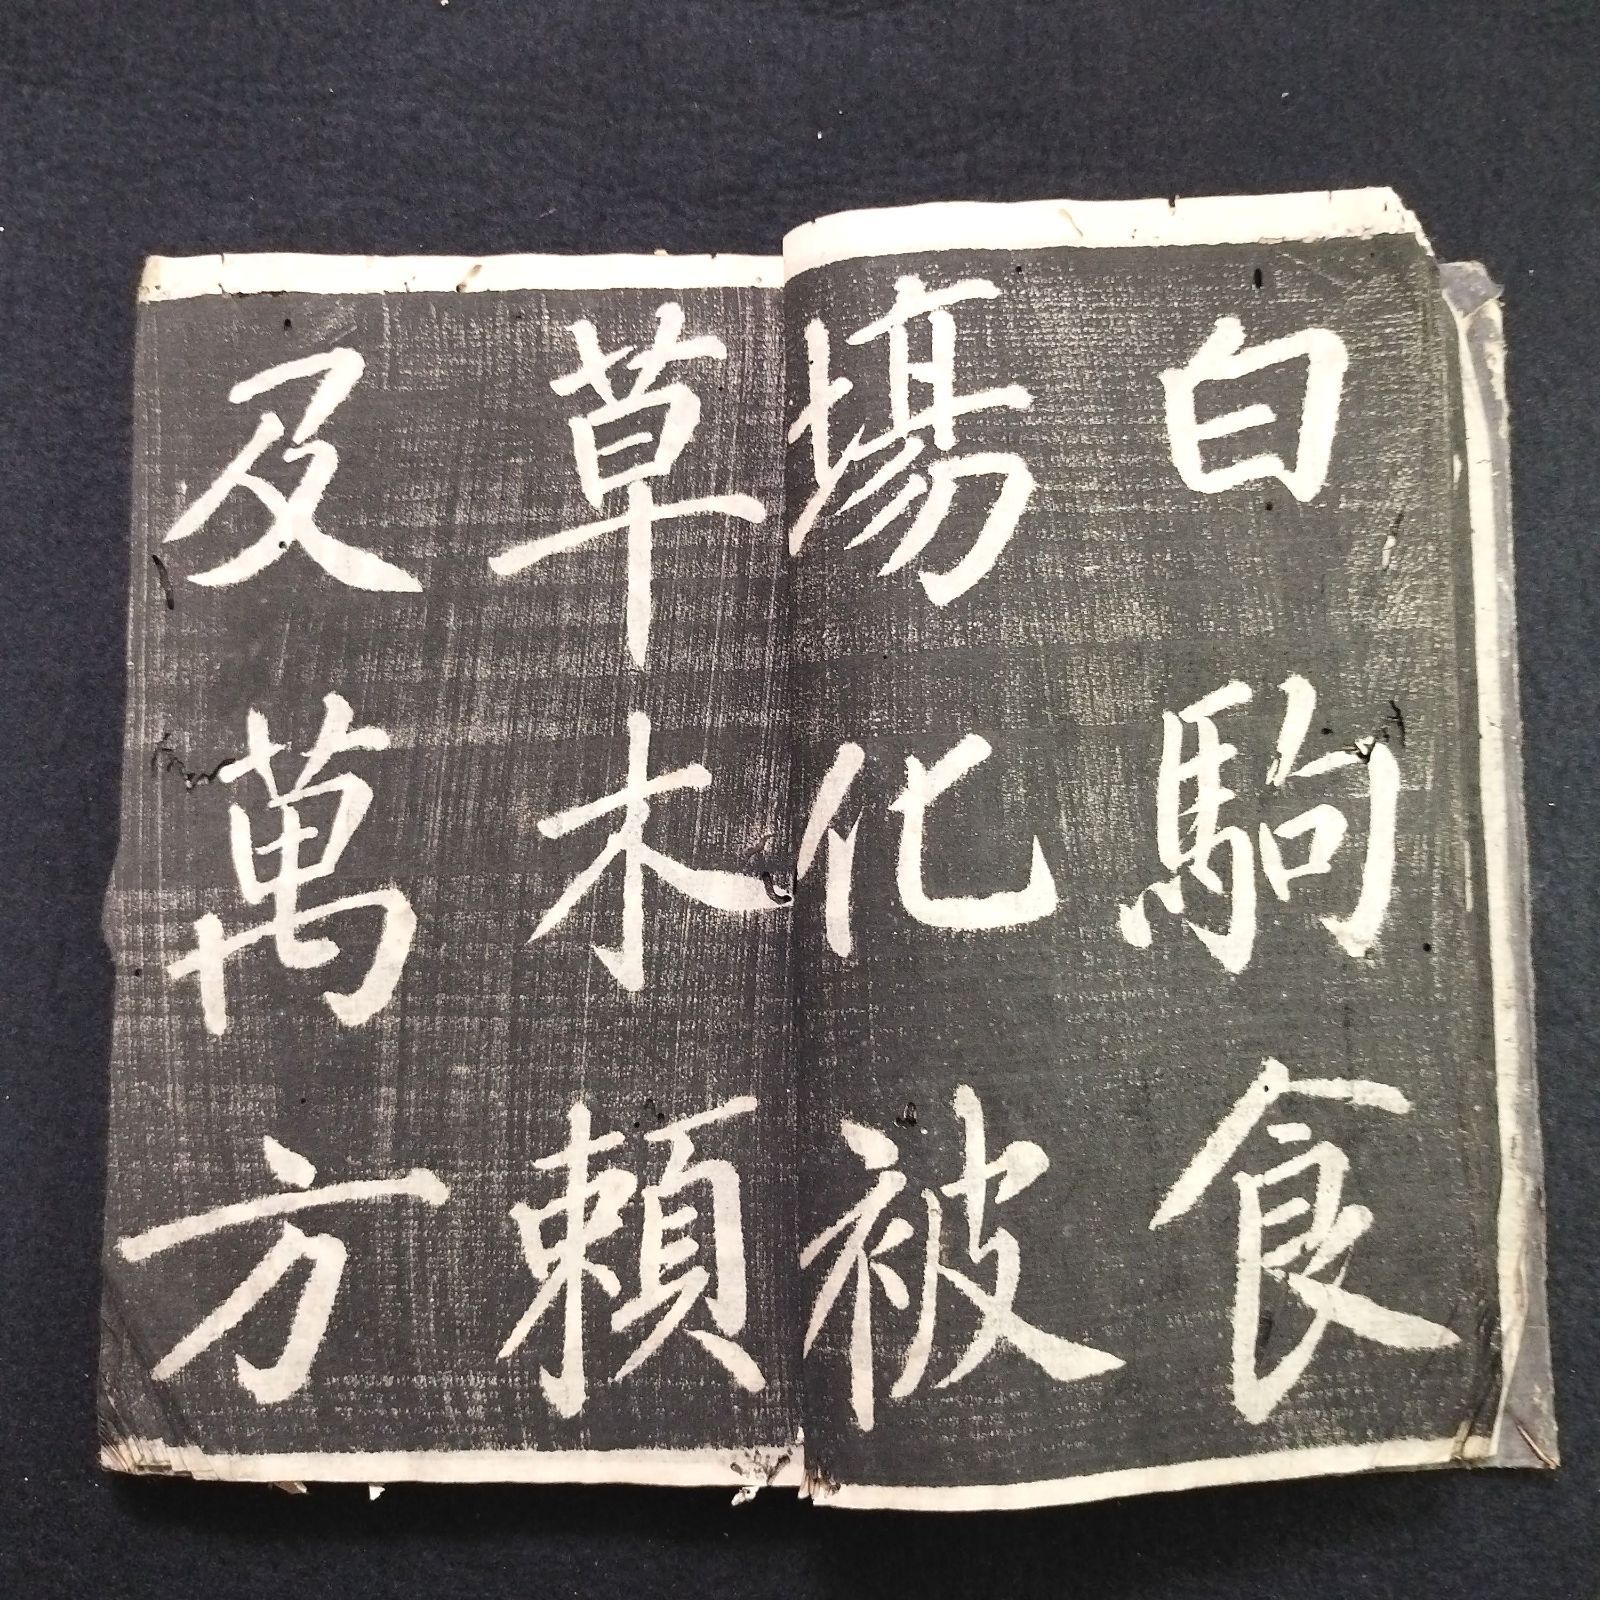 白駒食
場化被
草木頼
及萬方